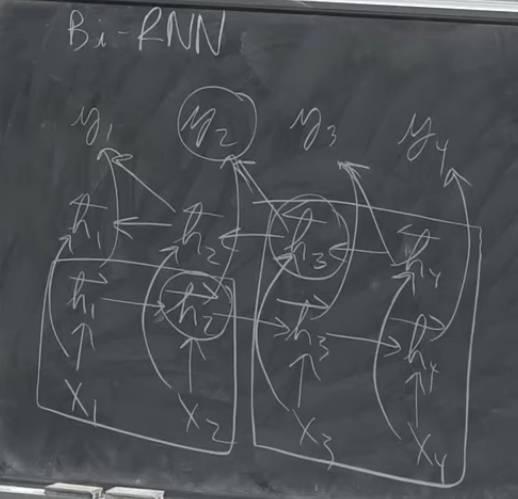 Bi-RNN
y₁ y₂ y₃ y₄
←h₁ ←h₂ ←h₃ ←h₄
→h₁ →h₂ →h₃ →h₄
x₁ x₂ x₃ x₄